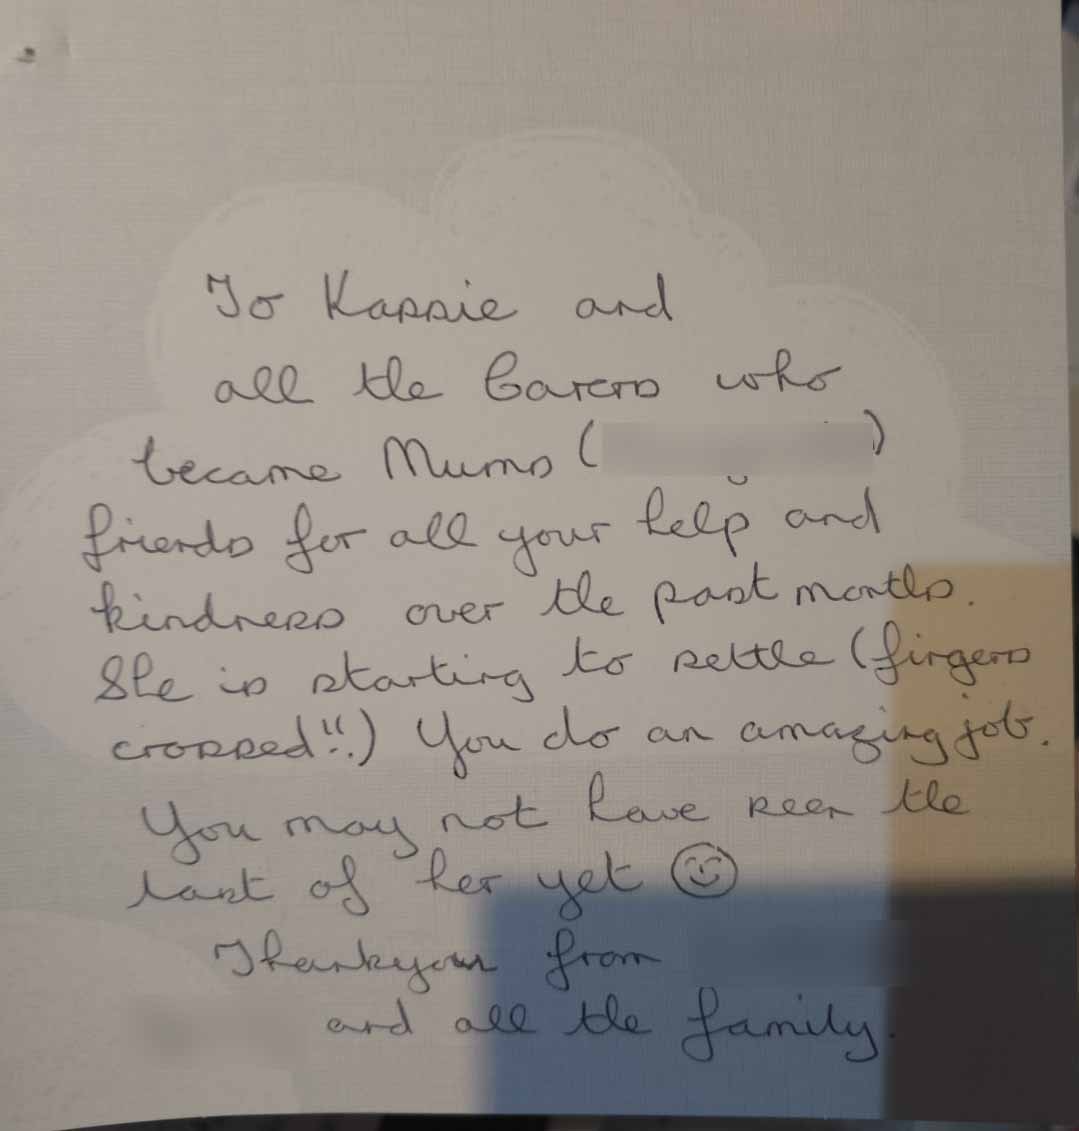 To Kassie and
all the Carers who
became Mums (        )
friends for all your help and
kindness over the past months.
She is starting to settle (fingers
crossed!!.) You do an amazing job.
You may not have seen the
last of her yet ☺
Thankyou from
and all the family.